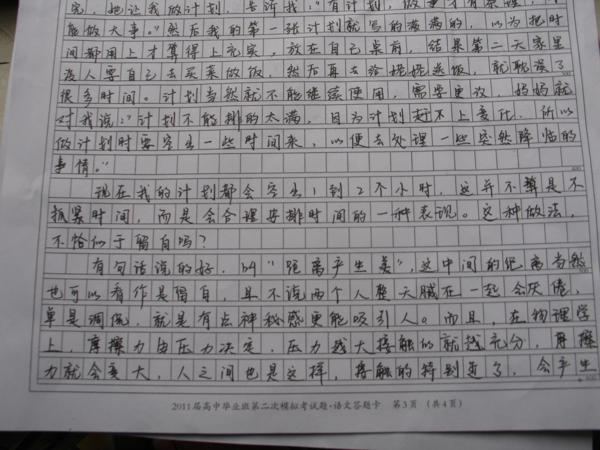 完，她让我做计划，告诉我："有计划，做事才有条理，才
能做大事。"然后我的第一张计划就写的满满的，以为把时
间都用上才算得上充实，放在自己桌前，结果第二天家里
没人要自己去买菜做饭，然后再去给姥姥送饭，就耽误了
很多时间。计划当然就不能继续使用，需要更改，妈妈就
对我说："计划不能排的太满，因为计划赶不上变化，所以
做计划时要空出一些时间来，以便去处理一些突然降临的
事情。"
现在我的计划都会空出1到2个小时，这并不算是不
抓紧时间，而是会合理安排时间的一种表现。这种做法，
不恰似于留白吗？
有句话说的好，叫"距离产生美"，这中间的距离当然
也可以看作是留白，且不说两个人整天腻在一起会厌倦，
单是调侃，就是有点神秘感更能吸引人。而且，在物理学
上，摩擦力由压力决定，压力越大接触的就越充分，摩擦
力就会变大，人之间也是这样，接触的特别近了，会产生
2011届高中毕业班第二次模拟考试题·语文答题卡 第3页 (共4页)